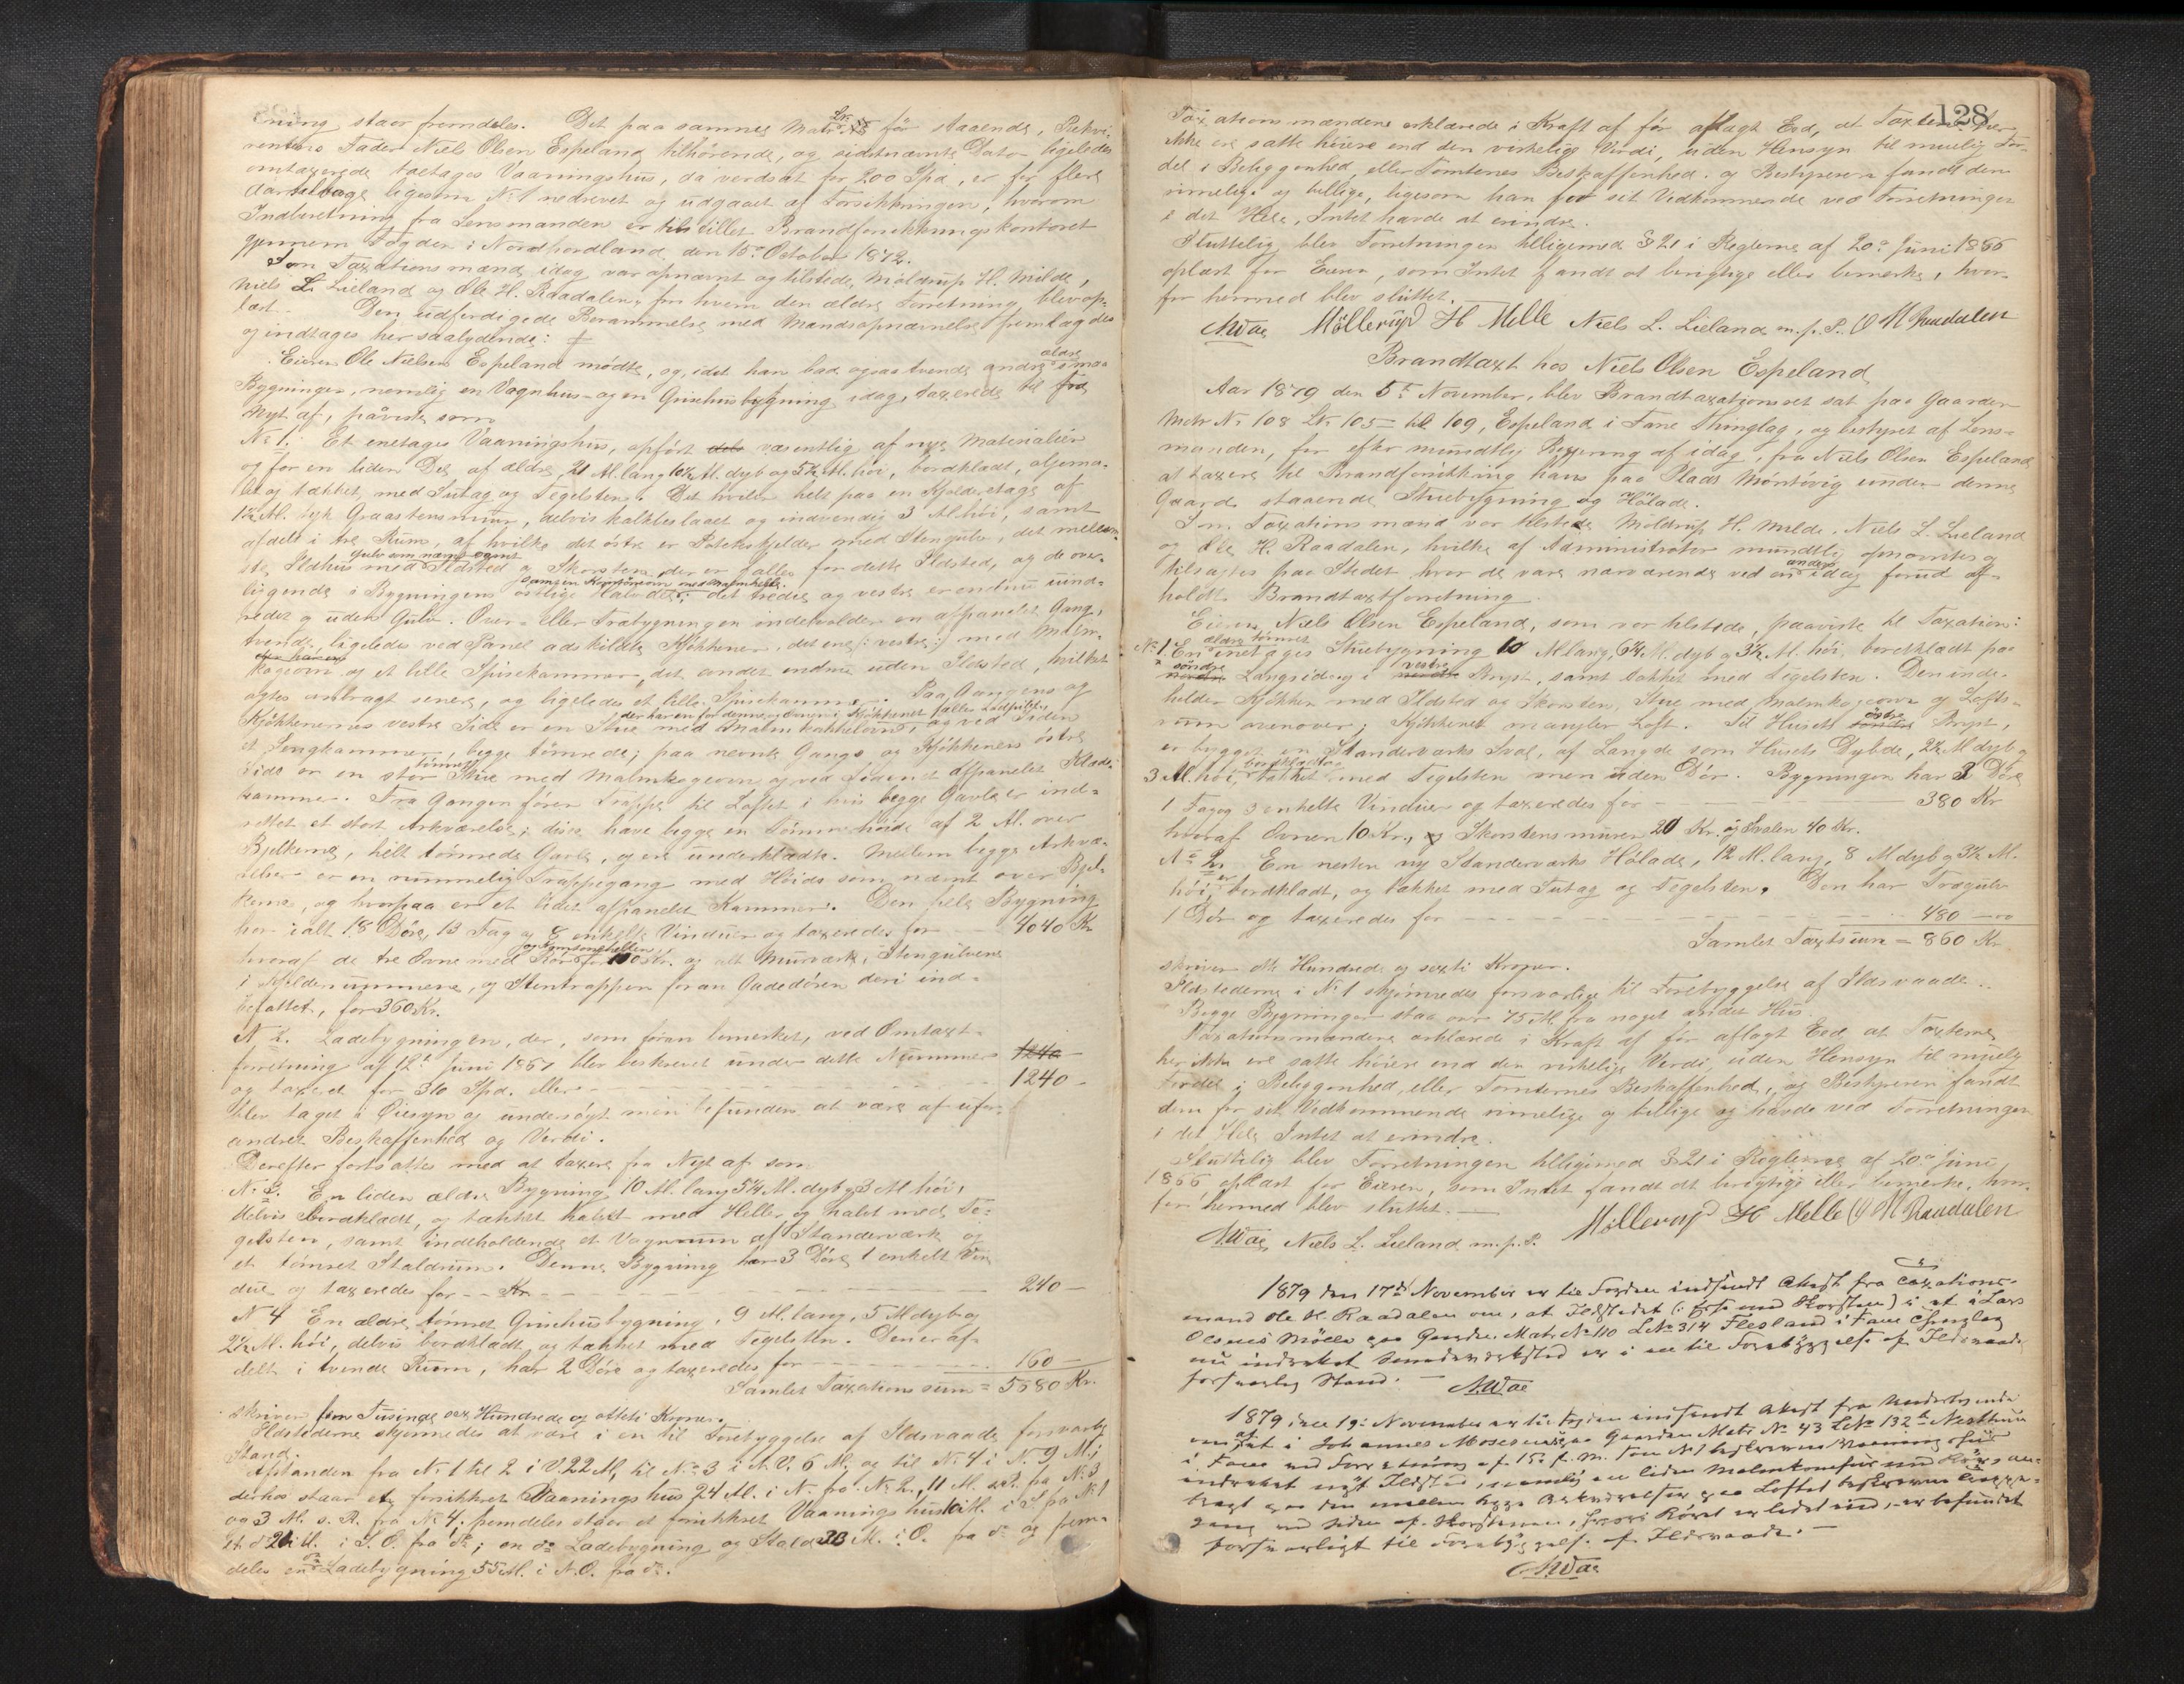 ning staar fremdeles. Det paa sammes Matr. Lnr. før staaende, Rekvi-
rentens Fader Niels Olsen Espeland tilhørende, og sidstnævnte Dato ligeledes
omtaxerede toetages Vaaningshus, da værdsat for 200 Spd, er for flere
Aar tilbage ligesom No 1 nedrevet og udgaaet af Forsikkringen, hvorom
Indberetning fra Lensmanden er tilstillet Brandforsikkringskontoret
gjennem Fogden i Nordhordland den 15de October 1872.
Som Taxationsmænd idag var opnævnt og tilstede Møldrup H. Milde,
Niels L. Lieland og Ole H. Raadalen, for hvem den ældre Forretning blev op-
læst. Den udfærdigede Berammelse med Mandsopnævnelse fremlagdes
og indtages her saalydende: +
Eieren Ole Nielsen Espeland mødte, og, idet han bad ogsaa tvende andre ældre smaa
Bygninger, nemlig en Vognhus- og en Grisehusbygning idag, taxerede til fra
Nyt af, paaviste som
No 1. Et enetages Vaaningshus, opført væsentlig af nye Materialier
og for en liden Del af ældre, 21 Al. lang 10½ Al. dyb og 5½ Al. høi, bordklædt, oljema-
let og tækket med Sutag og Tegelsten. Det hviler helt paa en Kjelderetage af
1½ Al. tyk Graastensmuur, delvis kalkbeslaaet og indvendig 3 Al. høi, samt
afdelt i tre Rum, af hvilke det østre er Potetskjelder med Stengulv, det mellem-
ste Ildhus med Gulv som nævnt samt Ildsted og Skorsten, der er fælles for dette Ildsted, og de over-
liggende i Bygningens østlige Halvdel; det tredie og vestre er endnu uind-
redet og uden Gulv. Over- eller Træbygningen indeholder en afpanelet Gang,
tvende, ligeledes ved Panel adskildte Kjøkkener, det ene (: vestre:) med Malm-
kogeovn og et lille Spisekammer, det andet endnu uden Ildsted, hvilket
agtes anbragt senere, og ligeledes et lille Spisekammer. Paa Gangens og
Kjøkkenernes vestre Side er en Stue med Malmkakkelovn, og ved Siden
et Sengkammer, begge tømrede; paa nævnte Gangs og Kjøkkeners østre
Side er en stor tømret Stue med Malmkogeovn og ved Siden et afpanelet Klæde-
kammer. Fra Gangen fører Trappe til Loftet i hvis begge Gavle er ind-
rettet et stort Arkværelse; disse have begge en Tømmerhøide af 2 Al. over
Bjelkerne, helt tømrede Gavle, og ere underklædte. Mellem begge Arkvæ-
relser er en rummelig Trappegang med Høide som nævnt over Bjel-
kerne, og hvorpaa er et lidet afpanelet Kammer. Den hele Bygning
har ialt 18 Døre, 13 Fag og 8 enkelte Vinduer og taxeredes for 4040 Kr
hvoraf de tre Ovne med Rør for 100 Kr. og alt Murværk, Stengulvene
i Kjelderrummene, og Stentrappen foran Gadedøren deri ind-
befattet, for 360 Kr.
No 2. Ladebygningen, der, som foran bemærket, ved Omtaxt-
forretning af 12te Juni 1857 blev beskrevet under dette Nummer 1240 -
og taxeret for 310 Spd. eller - - - 1240 -
blev taget i Øiesyn og undersøgt men befunden at være af ufor-
andret Beskaffenhed og Værdi.
Derefter fortsattes med at taxere fra Nyt af som
No 3. En liden ældre Bygning 10 Al. lang 5¼ Al. dyb og 3 Al høi,
delvis bordklædt, og tækket halvt med Heller og halvt med Te-
gelsten, samt indeholdende et Vognrum af Standerværk og
et tømret Staldrum. Denne Bygning har 3 Døre 1 enkelt Vin
due og taxeredes for - - Kr - - - 240 -
No 4 En ældre, tømret Grisehusbygning, 9 Al. lang, 5 Al dyb og
2½ Al. høi, delvis bordklædt og tækket med Tegelsten. Den er af-
delt i tvende Rum, har 2 Døre og taxeredes for - - - 160 -
Samlet Taxationssum = 5680 Kr.
skriver fem Tusinde sex Hundrede og otteti Kroner.
Ildstederne skjønnedes at være i en til Forebyggelse af Ildsvaade forsvarlig
Stand.
Afstanden fra No 1 til 2 i V. 22 Al, til No 3 i N.V. 6 Al. og til No 4 i N. 9 Al;
derhos staar et forsikkret Vaaningshus 24 Al. i N. fra No 2, 11 Al. s. R. fra No 3
og 3 Al. s. R. fra No 4. fremdeles staar et forsikkret Vaaningshus i S fra No 1
et do 26 Al. i S.O. fra do; en do Ladebygning og Stald 23 Al. i O. fra do og frem-
deles en do Ladebygning 55 Al. i N.O. fra do.
128
Taxationsmændene erklærede i Kraft af før aflagt Eed, at Taxterne her
ikke ere satte høiere end den virkelige Værdi, uden Hensyn til muulig For-
del i Beliggenhed, eller Tomternes Beskaffenhed. og Bestyreren fandt dem
rimelige og billige, ligesom han for sit Vedkommende ved Forretningen
i det Hele, Intet havde at erindre.
Sluttelig blev Forretningen tilligemed § 21 i Reglerne af 20de Juni 1866
oplæst for Eieren, som Intet fandt at berigtige eller bemærke, hvor-
for hermed blev sluttet.
Møllerup H Melle Niels L. Lieland m. p. P. O H Raadalen
Brandtaxt hos Niels Olsen Espeland
Aar 1879 den 5te November, blev Brandtaxationsret sat paa Gaarden
Matr No 108 LNr 105 til 109, Espeland i Fane Thinglag, og bestyret af Lens-
manden, for efter mundtlig Begjæring af idag, fra Niels Olsen Espeland
at taxere til Brandforsikkring hans paa Plads Møntevig under denne
Gaard staaende Stuebygning og Hølade.
Som Taxationsmænd var tilstede Møldrup H. Milde, Niels L. Lieland
og Ole H. Raadalen, hvilke af Administrator mundtlig opnævntes og
tilsagdes paa Stedet hvor de vare nærværende ved en anden idag forud af-
holdt Brandtaxtforretning.
Eieren, Niels Olsen Espeland, som var tilstede, paaviste til Taxation:
No 1 En ældre tømret enetages Stuebygning 10 Al lang, 6¼ Al. dyb og 3½ Al. høi, bordklædt paa
søndre Langside og i vestre Røst, samt tækket med Tegelsten. Den inde-
holder Kjøkken med Ildsted og Skorsten, Stue med Malmkogeovn og Lofts-
rum ovenover; Kjøkkenet mangler Loft. Til Husets østre Røst,
er bygget en Standerværks Sval, af Længde som Husets Dybde, 2½ Al dyb og
3 Al. høi, bordklædt og tækket med Tegelsten men uden Dør. Bygningen har 3 Døre
1 Fag og 3 enkelte Vinduer og taxeredes for - - - 380 Kr
hvoraf Ovnen 10 Kr., Skorstensmuren 20 Kr. og Svalen 40 Kr.
No 2. En nesten ny Standerværks Hølade, 12 Al. lang, 8 Al dyb og 3½ Al.
høi, er bordklædt, og tækket med Sutag og Tegelsten. Den har Trægulv
1 Dør og taxeredes for - - - 480 -
Samlet Taxtsum = 860 Kr.
skriver otte Hundrede og sexti Kroner.
Ildstederne i No 1 skjønnedes forsvarlige til Forebyggelse af Ildsvaade.
Begge Bygninger staa over 75 Al. fra noget andet Hus.
Taxationsmændene erklærede i Kraft af før aflagt Eed, at Taxterne
her ikke ere satte høiere end den virkelige Værdi, uden Hensyn til muulig
Fordel i Beliggenhed, eller Tomternes Beskaffenhed, og Bestyreren fandt
dem for sit Vedkommende rimelige og billige og havde ved Forretningen
i det Hele Intet at erindre.
Sluttelig blev Forretningen tilligemed § 21 i Reglerne af 20de Juni
1866 oplæst for Eieren, som Intet fandt at berigtige eller bemærke, hvor-
for hermed blev sluttet. -
Niels L. Lieland m. p. P. Møllerup H Melle O H Raadalen
1879 den 17de November er til Fogden indsendt Attest fra Taxations-
mand Ole H. Raadalen om, at Ildstedet med Skorsten i et i Lars
Olsens Mølle paa Gaarden Matr. No 110 LNo 314 Flesland i Fane Thinglag
nu indrettet er i en til Forebyggelse af Ildsvaade
forsvarlig Stand. -
1879 den 19de November er til Fogden indsendt Attest fra Undertegnede
om at det i Johannes Mosesens paa Gaarden Matr No 43 LNo 132 Nestthun
i Fane ved Forretning af 15de f. M. som No 1 beskrevne Vaaningshus
indrettet nyt Ildsted, nemlig en liden Malmkomfur med Rør an-
bragt paa den mellem begge Arkværelser paa Loftet beskrevne Trappe-
gang ved Siden af Skorstenen, hvori Røret er ledet ind, er befundet
forsvarligt til Forebyggelse af Ildsvaade. -